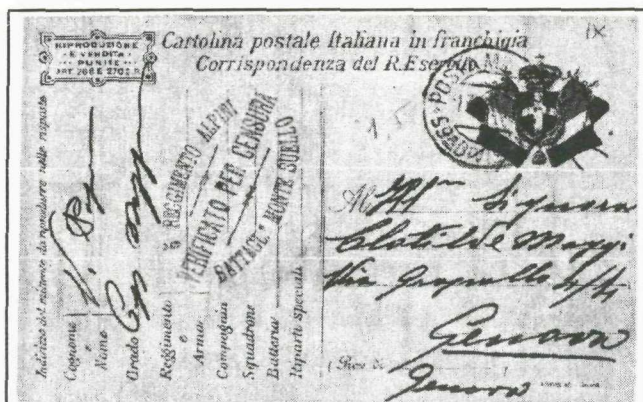 RIPRODUZIONE
E VENDITA
PUNITE
ART. 266 E 270 C.P.
Cartolina postale Italiana in franchigia
Corrispondenza del R. Esercito
IX
POSTA M
1.5
Indirizzo del mittente da riprodurre nelle risposte
Cognome
e
Nome
Grado
Reggimento
e
Arma
Compagnia
Squadrone
Batteria
Riparti speciali
REGGIMENTO ALPINI
VERIFICATO PER CENSURA
BATTAGL. MONTE
Al Ill Signora
Clotilde Maggi
Via 4/4
Genova
(Prov di
Genova